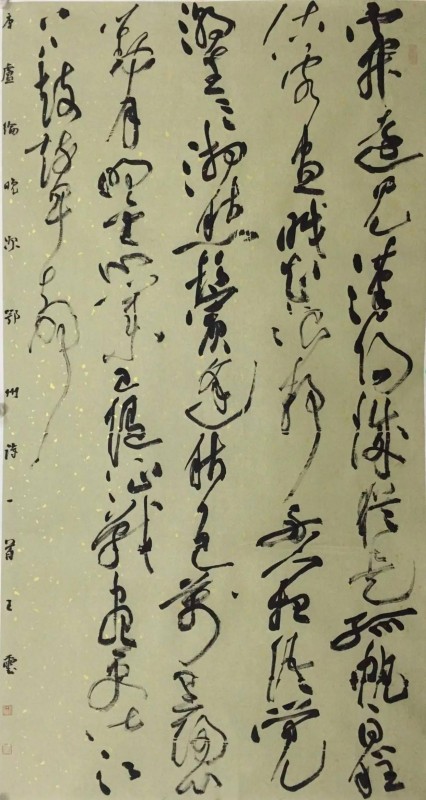 雲開遠見漢陽城猶是孤帆一日程
估客晝眠知浪靜舟人夜語覺
潮生三湘愁鬢逢秋色萬里歸心
對月明舊業已隨征戰盡更堪江
上鼓鼙聲
唐盧綸晚次鄂州詩一首王